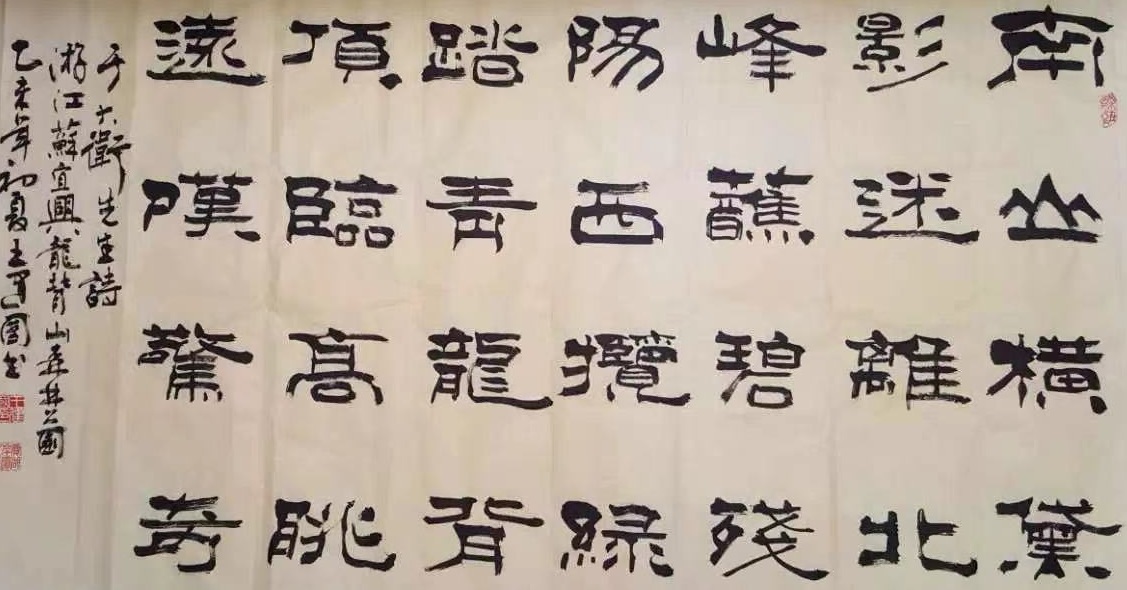 南山橫黛
影迷離北
峰蘸碧殘
陽西攬綠
踏青龍背
頂臨高眺
遠嘆驚奇
于大衛先生詩
游江蘇宜興龍背山森林公園
乙未年初夏王國書